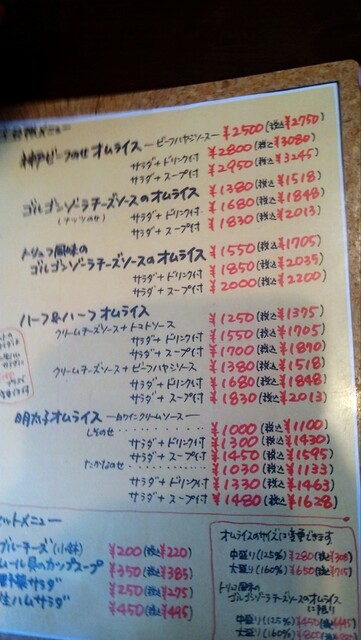 メニュー
神戸ビーフのせ オムライス ービーフハヤシソースー ¥2500(税込¥2750)
サラダ+ドリンク付 ¥2800(税込¥3080)
サラダ+スープ付 ¥2950(税込¥3245)
ゴルゴンゾーラチーズソースのオムライス ¥1380(税込¥1518)
(ナッツのせ) サラダ+ドリンク付 ¥1680(税込¥1848)
サラダ+スープ付 ¥1830(税込¥2013)
トリュフ風味の
ゴルゴンゾーラチーズソースのオムライス ¥1550(税込¥1705)
サラダ+ドリンク付 ¥1850(税込¥2035)
サラダ+スープ付 ¥2000(税込¥2200)
ハーフ&ハーフ オムライス
クリームチーズソース+トマトソース ¥1250(税込¥1375)
サラダ+ドリンク付 ¥1550(税込¥1705)
サラダ+スープ付 ¥1700(税込¥1870)
クリームチーズソース+ビーフハヤシソース ¥1380(税込¥1518)
サラダ+ドリンク付 ¥1680(税込¥1848)
サラダ+スープ付 ¥1830(税込¥2013)
明太子オムライス ー白ワインクリームソースー
しそのせ ¥1000(税込¥1100)
サラダ+ドリンク付 ¥1300(税込¥1430)
サラダ+スープ付 ¥1450(税込¥1595)
たかなのせ ¥1030(税込¥1133)
サラダ+ドリンク付 ¥1330(税込¥1463)
サラダ+スープ付 ¥1480(税込¥1628)
セットメニュー
ブルーチーズ(小鉢) ¥200(税込¥220)
ムール貝のカップスープ ¥350(税込¥385)
野菜サラダ ¥250(税込¥275)
生ハムサラダ ¥450(税込¥495)
オムライスのサイズは変更できます
中盛り(125%) ¥280(税込¥308)
大盛り(160%) ¥650(税込¥715)
トリュフ風味の
ゴルゴンゾーラチーズソースのオムライス
に限り
中盛り(125%) ¥450(税込¥495)
大盛り(160%)